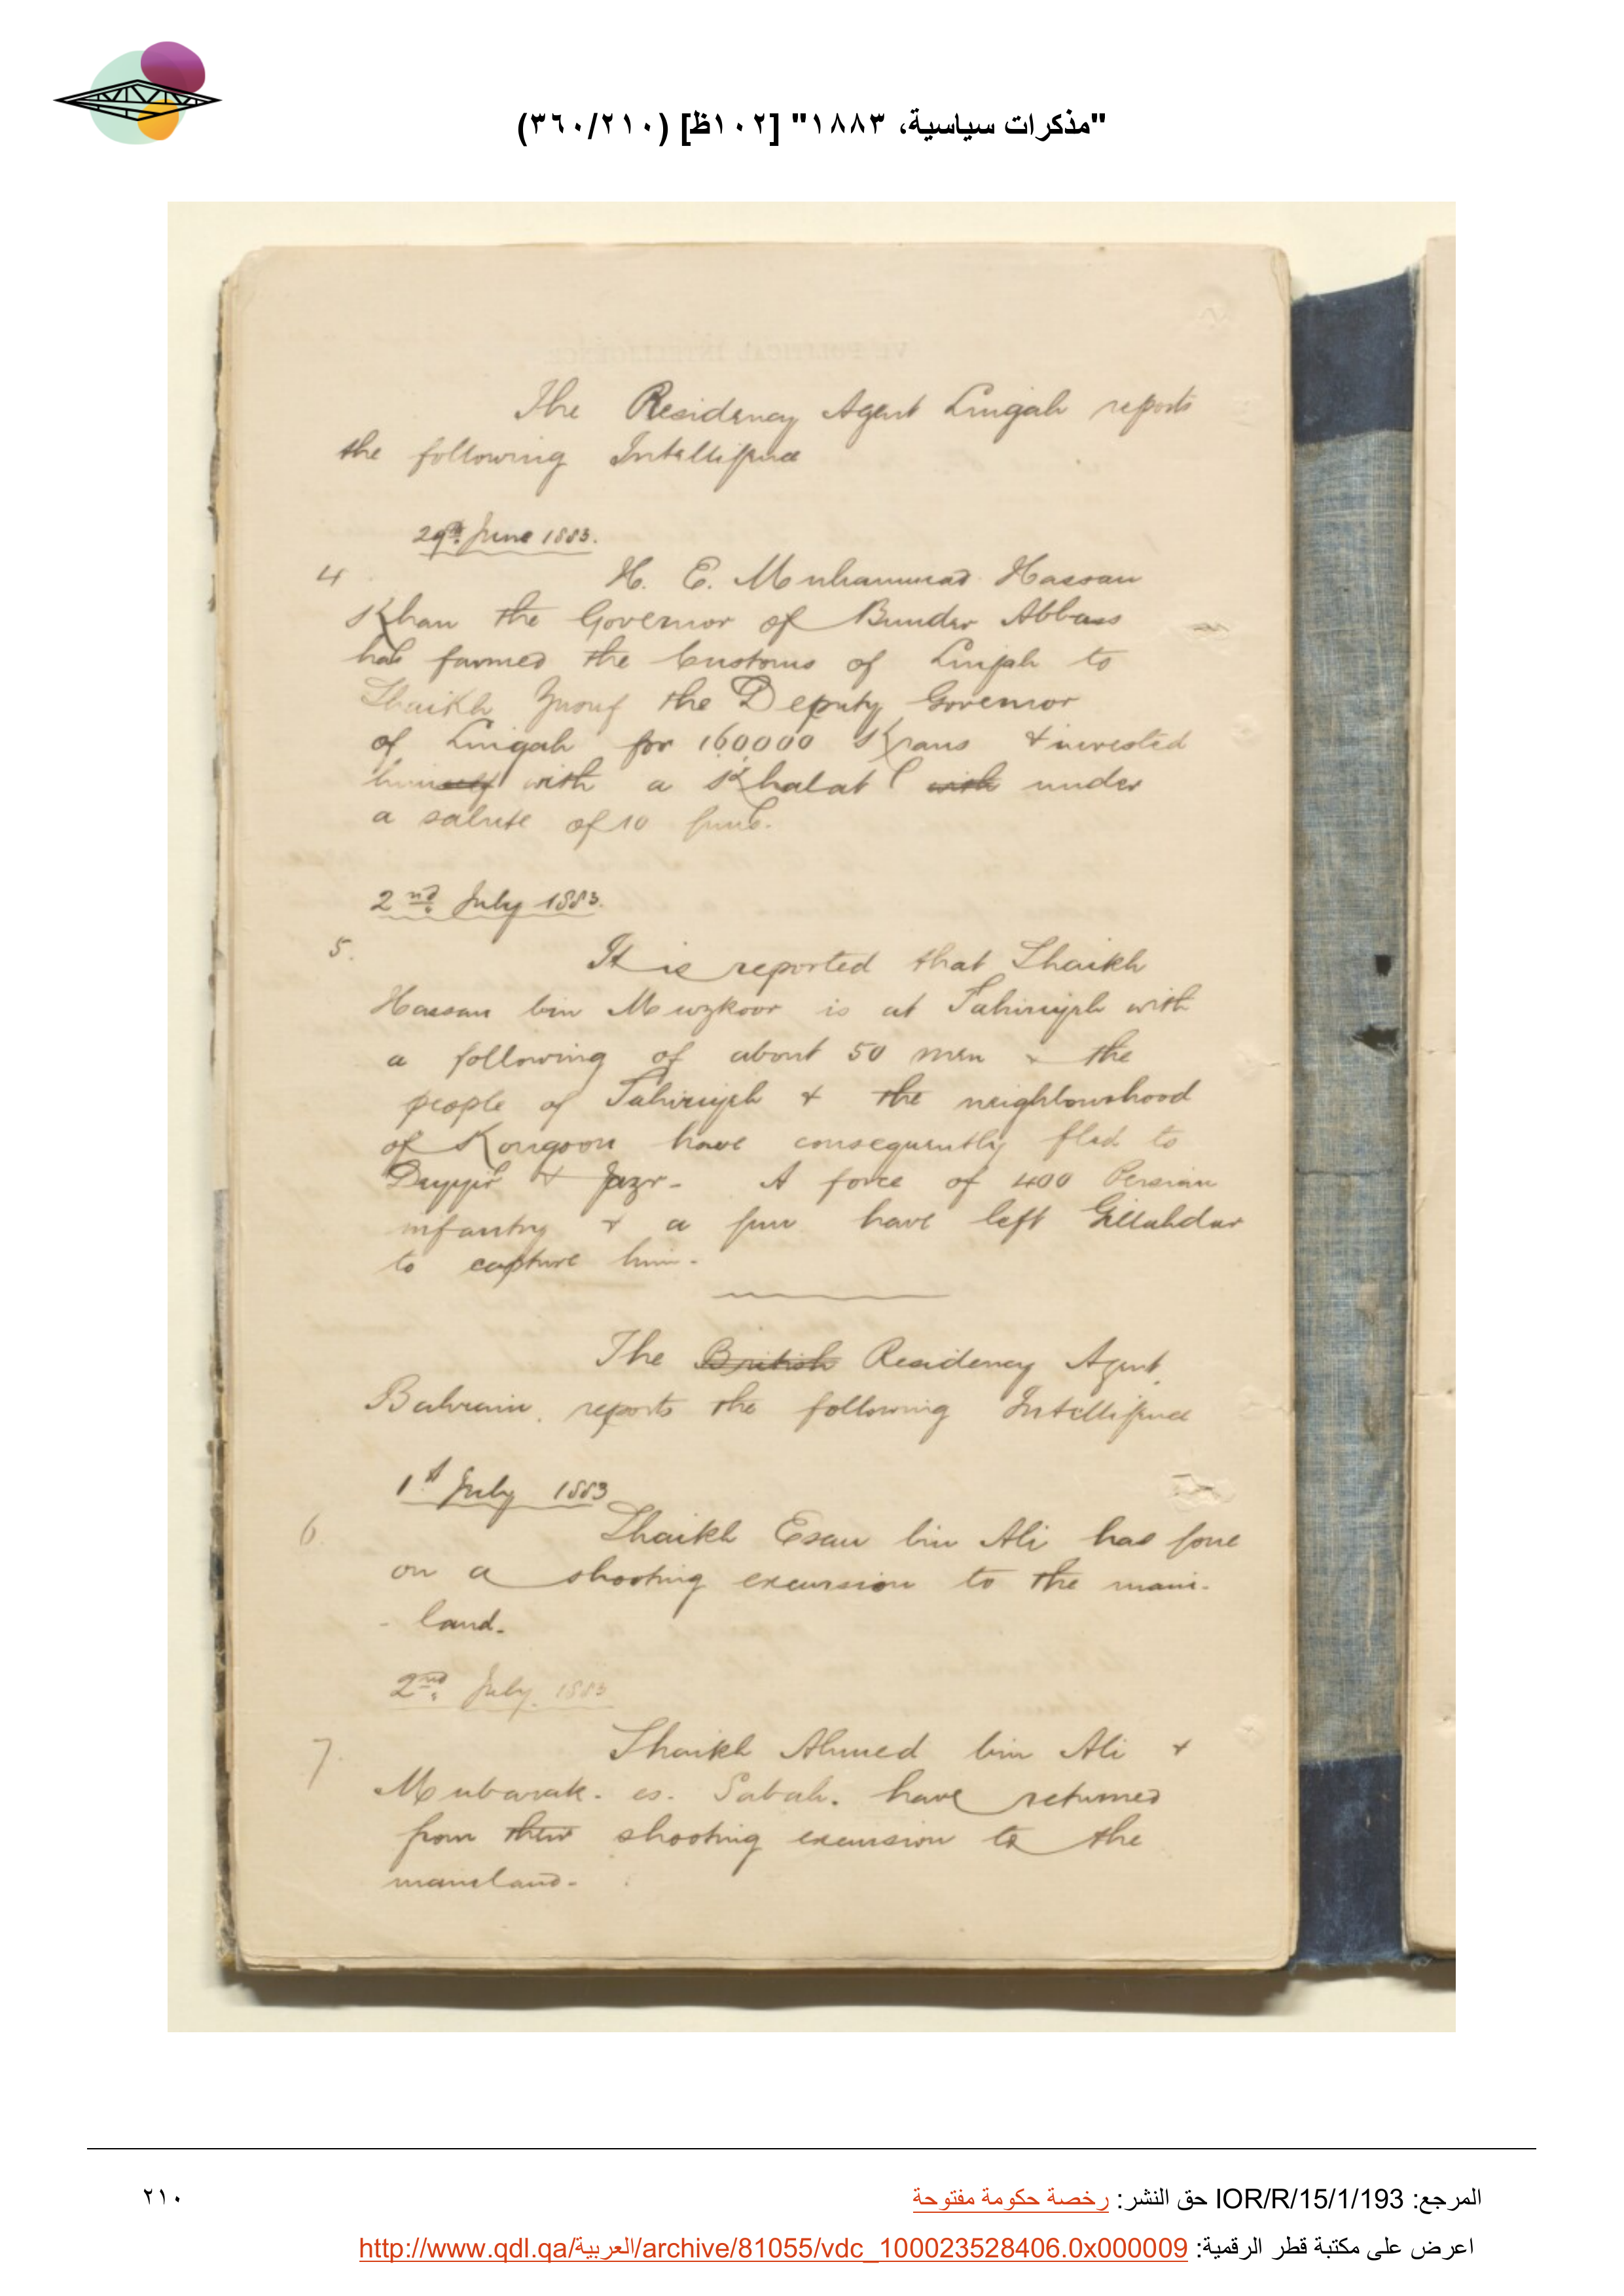 "مذكرات سياسية، ١٨٨٣" [١٠٢ظ] (٣٦٠/٢١٠)
The Residency Agent Lingah reports
the following Intelligence
29th. June 1883.
4 H. E. Muhammad Hassan
Khan the Governor of Bunder Abbass
has farmed the Customs of Lingah to
Shaikh Yusuf the Deputy Governor
of Lingah for 160000 Krans & invested
himself with a Khalat with under
a salute of 10 guns.
2nd. July 1883.
5. It is reported that Shaikh
Hassan bin Muzkoor is at Tahiriyeh with
a following of about 50 men & the
people of Tahiriyeh & the neighbourhood
of Kongoon have consequently fled to
Dayyir & Jazr- A force of 400 Persian
infantry & a gun have left Gillahdar
to capture him-
The British Residency Agent
Bahrain, reports the following Intelligence
1st July 1883
6. Shaikh Esau bin Ali has gone
on a shooting excursion to the main-
- land.
2nd. July 1883
7. Shaikh Ahmed bin Ali &
Mubarak. es. Sabah. have returned
from their shooting excursion to the
mainland-
المرجع: IOR/R/15/1/193 حق النشر: رخصة حكومة مفتوحة
٢١٠
اعرض على مكتبة قطر الرقمية: http://www.qdl.qa/العربية/archive/81055/vdc_100023528406.0x000009